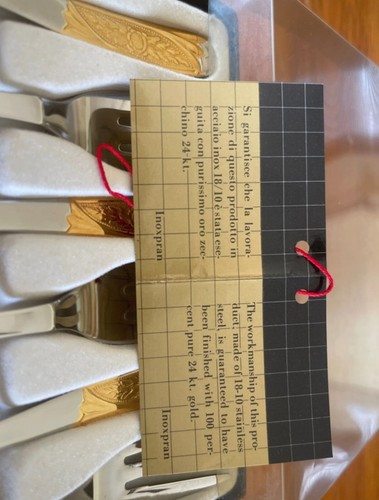 Si garantisce che la lavora-
zione di questo prodotto in
acciaio inox 18/10 è stata ese-
guita con purissimo oro zec-
chino 24 kt.
Inoxpran
The workmanship of this pro-
duct, made of 18-10 stainless
steel, is guaranteed to have
been finished with 100 per-
cent pure 24 kt. gold.
Inoxpran